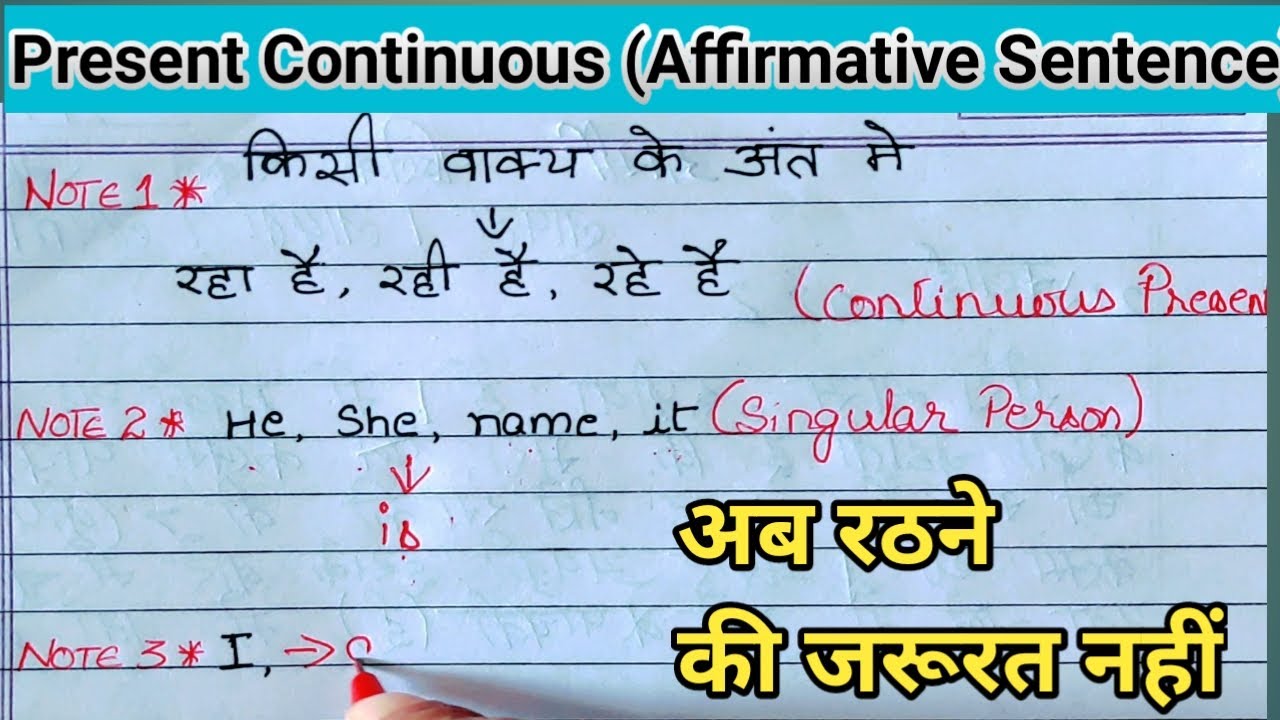 Present Continuous (Affirmative Sentence)
NOTE 1 * किसी वाक्य के अंत मे
रहा है, रही है, रहे हैं (Continuous Presen
NOTE 2 * He, She, name, it (Singular Person)
is
अब रठने
NOTE 3 * I, →
की जरूरत नहीं